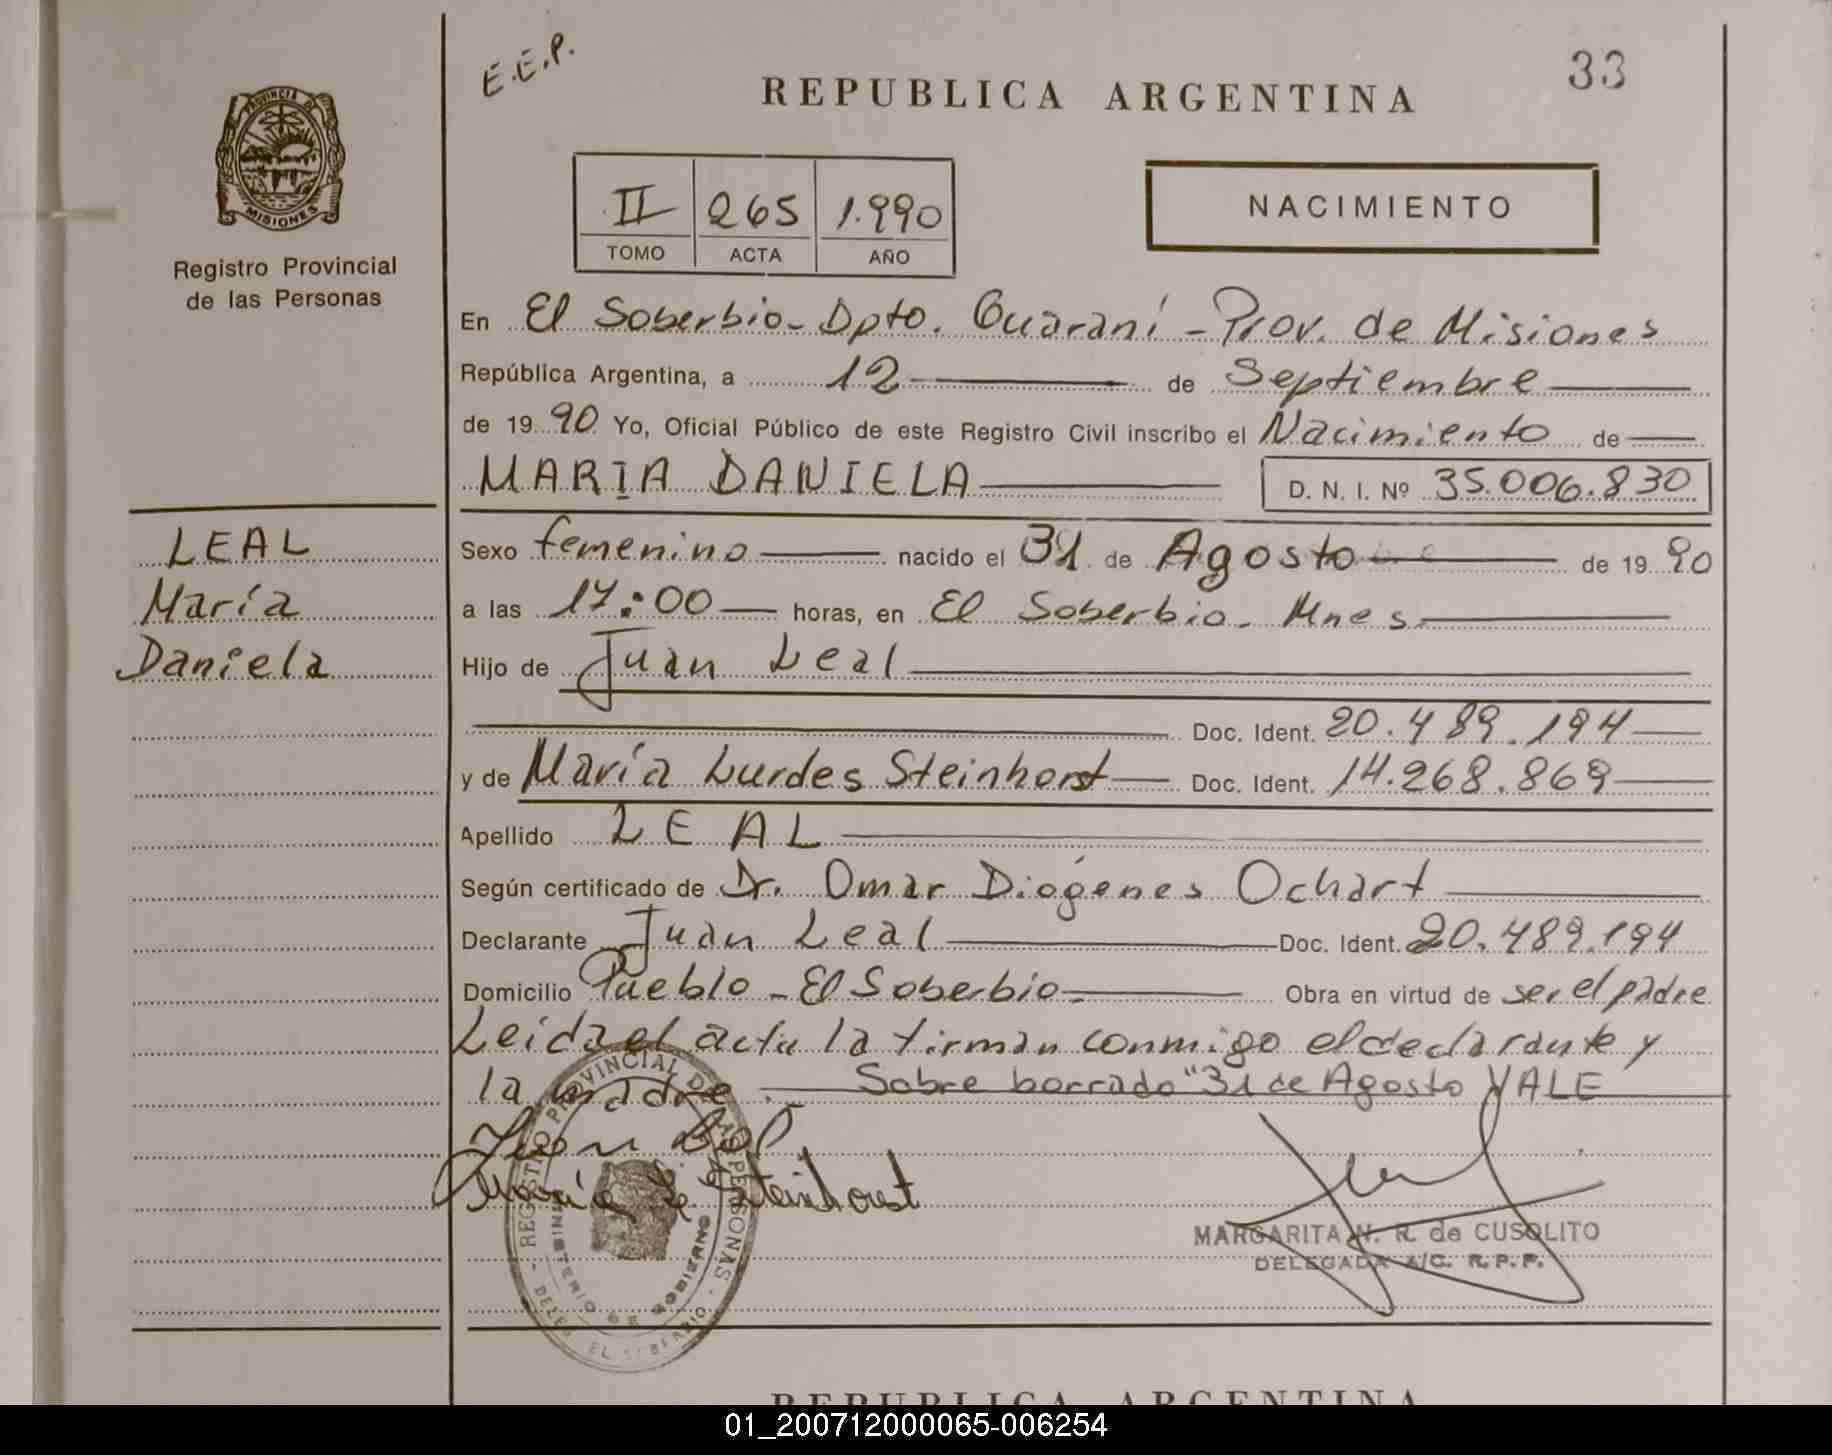 E.E.P.
33
REPUBLICA ARGENTINA
PROVINCIA DE
MISIONES
Registro Provincial
de las Personas
II 265 1.990
TOMO ACTA AÑO
NACIMIENTO
En El Soberbio - Dpto. Guaraní - Prov. de Misiones
República Argentina, a 12 de Septiembre
de 19 90 Yo, Oficial Público de este Registro Civil inscribo el Nacimiento de
MARIA DANIELA D. N. I. Nº 35.006.830
LEAL
María
Daniela
Sexo femenino nacido el 31 de Agosto de 19 90
a las 17:00 horas, en El Soberbio - Mnes.
Hijo de Juan Leal
Doc. Ident. 20.489.194
y de María Lurdes Steinhorst Doc. Ident. 14.268.869
Apellido LEAL
Según certificado de Dr. Omar Diógenes Ochart
Declarante Juan Leal Doc. Ident. 20.489.194
Domicilio Pueblo - El Soberbio - Obra en virtud de ser el padre
Leida el acta la firman conmigo el declarante y
la madre. Sobre borrado "31 de Agosto VALE
Juan Leal
María L. Steinhorst
REGISTRO PROVINCIAL DE LAS PERSONAS
MINISTERIO DE GOBIERNO
MARGARITA N. R. de CUSOLITO
DELEGADA A/C. R.P.P.
REPUBLICA ARGENTINA
01_200712000065-006254